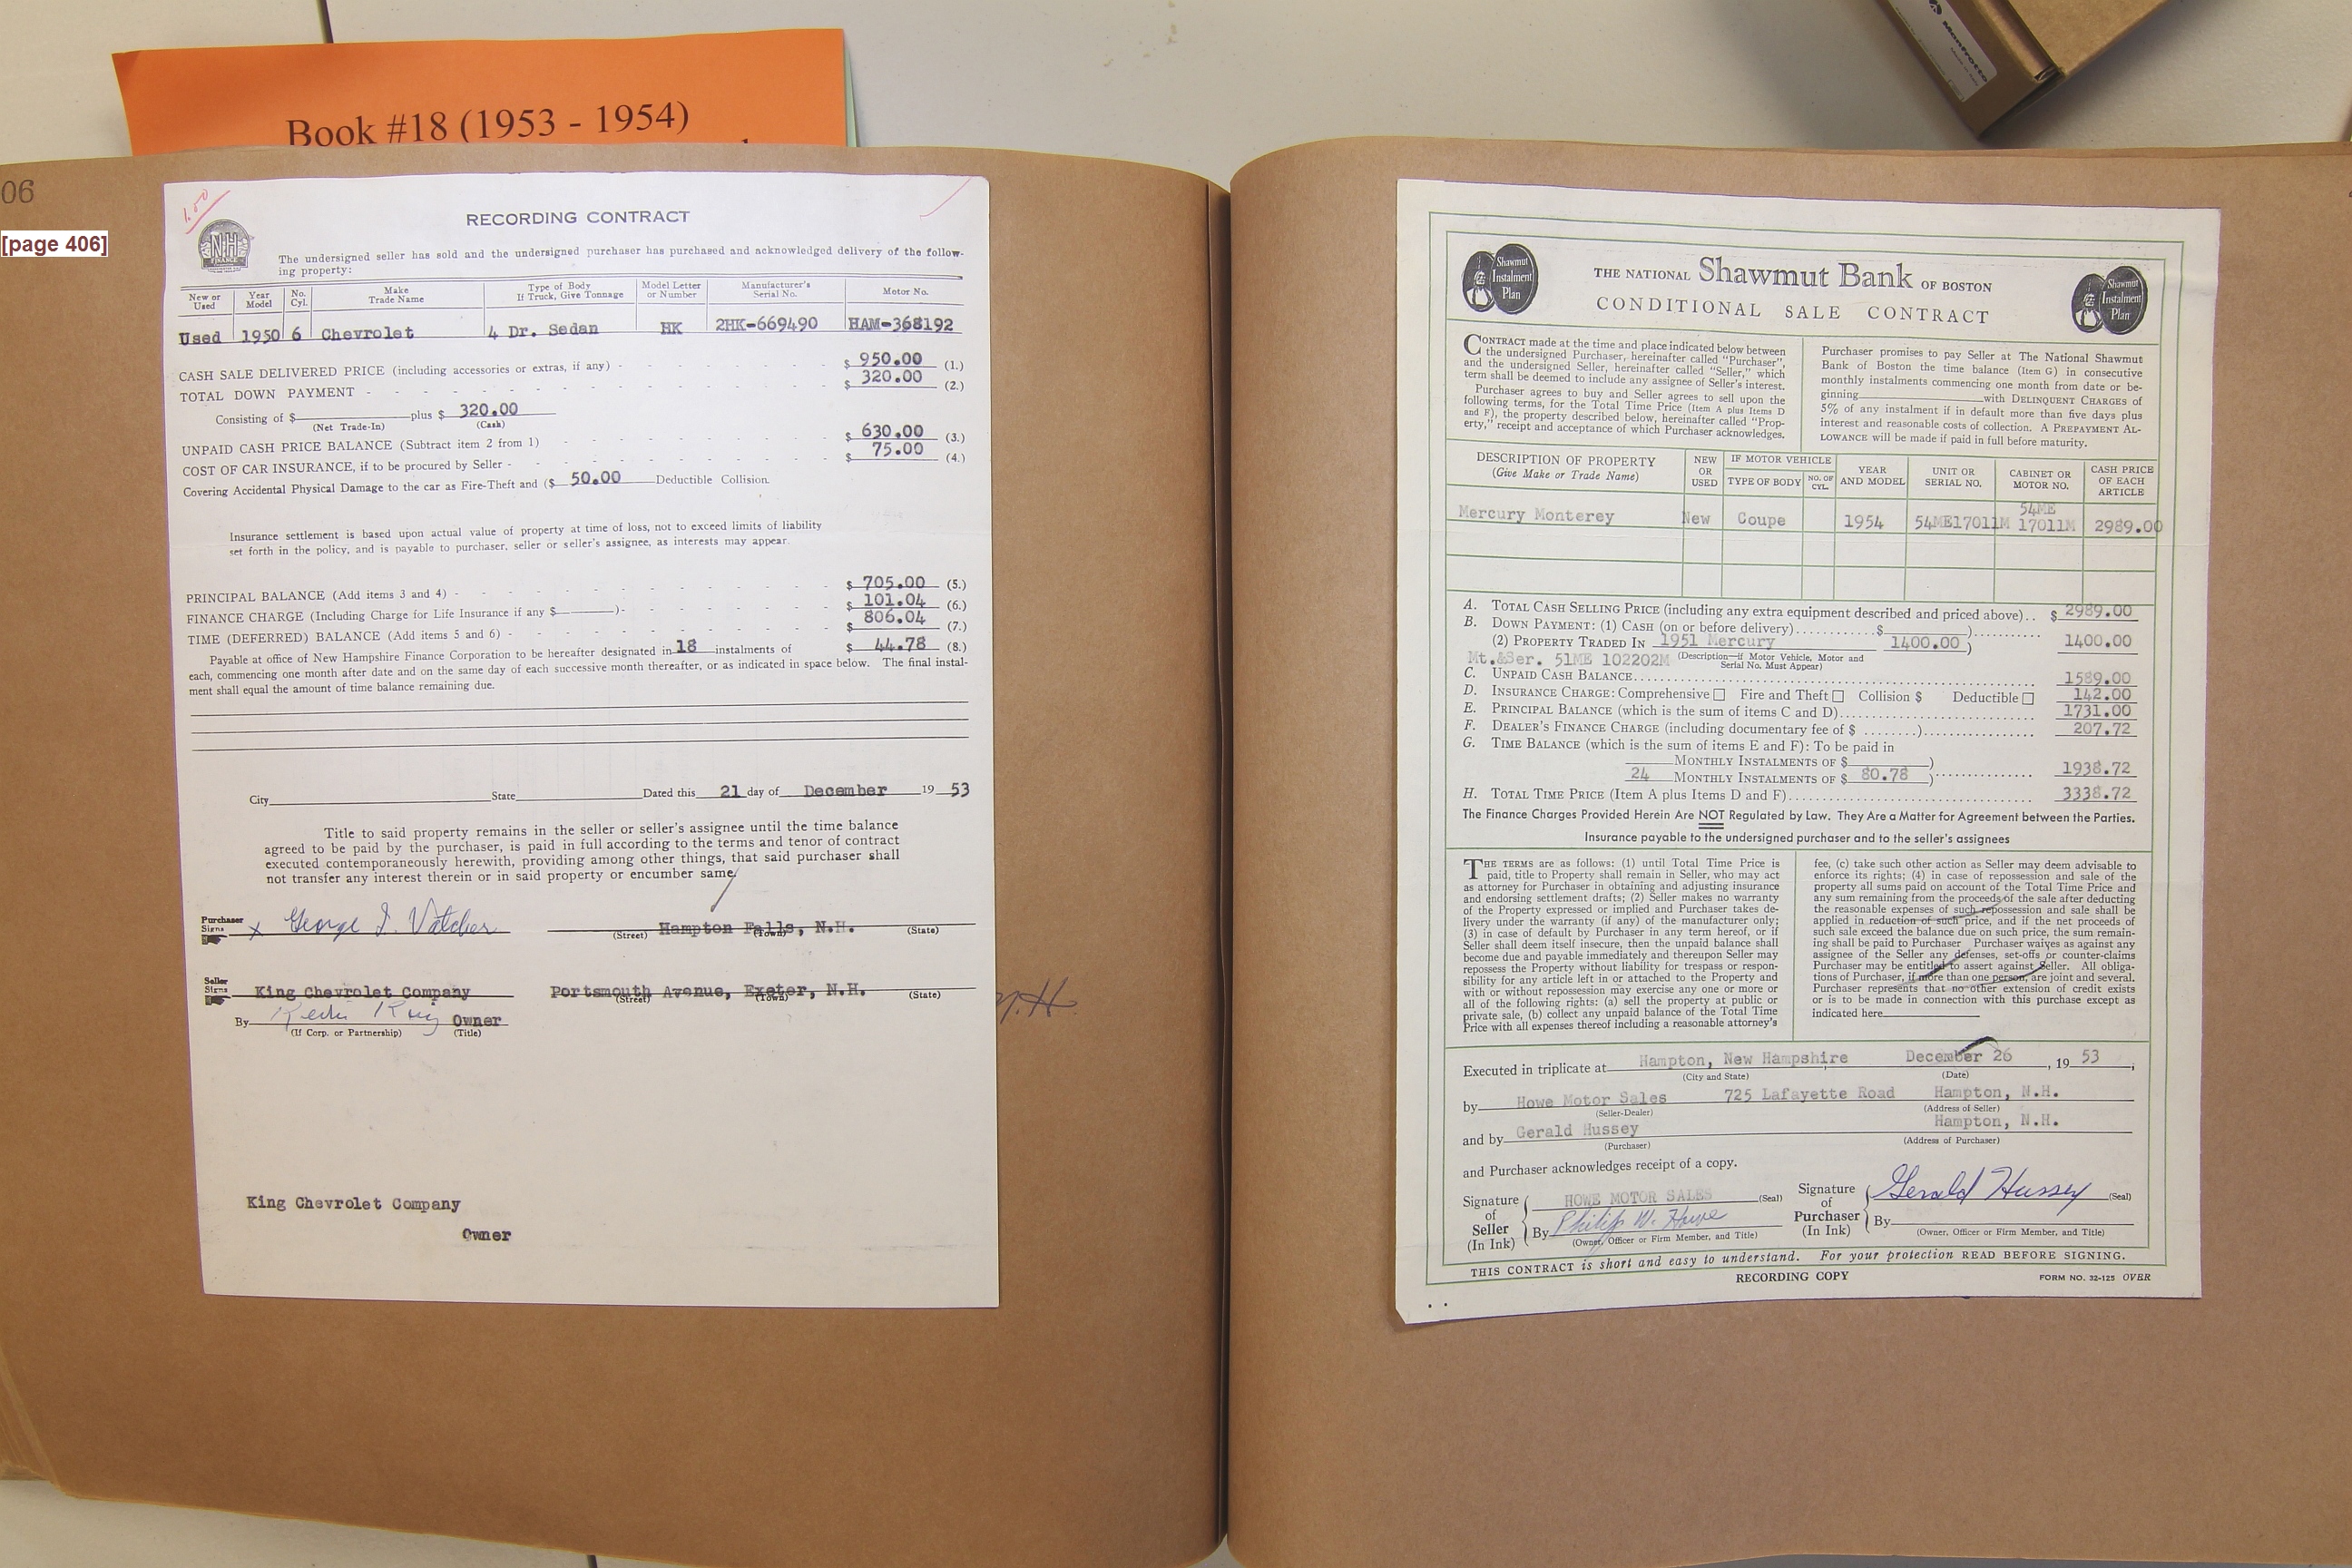 Book #18 (1953 - 1954)
06
[page 406]
1.00
NH
FINANCE
RECORDING CONTRACT
The undersigned seller has sold and the undersigned purchaser has purchased and acknowledged delivery of the follow-
ing property:
New or Used Year Model No. Cyl. Make Trade Name Type of Body If Truck, Give Tonnage Model Letter or Number Manufacturer's Serial No. Motor No.
Used 1950 6 Chevrolet 4 Dr. Sedan HK 2HK-669490 HAM-368192
CASH SALE DELIVERED PRICE (including accessories or extras, if any) - $ 950.00 (1.)
TOTAL DOWN PAYMENT - $ 320.00 (2.)
Consisting of $ plus $ 320.00
(Net Trade-In) (Cash)
UNPAID CASH PRICE BALANCE (Subtract item 2 from 1) - $ 630.00 (3.)
COST OF CAR INSURANCE, if to be procured by Seller - $ 75.00 (4.)
Covering Accidental Physical Damage to the car as Fire-Theft and ($ 50.00 Deductible Collision.
Insurance settlement is based upon actual value of property at time of loss, not to exceed limits of liability
set forth in the policy, and is payable to purchaser, seller or seller's assignee, as interests may appear.
PRINCIPAL BALANCE (Add items 3 and 4) - $ 705.00 (5.)
FINANCE CHARGE (Including Charge for Life Insurance if any $ ) - $ 101.04 (6.)
TIME (DEFERRED) BALANCE (Add items 5 and 6) - $ 806.04 (7.)
Payable at office of New Hampshire Finance Corporation to be hereafter designated in 18 instalments of $ 44.78 (8.)
each, commencing one month after date and on the same day of each successive month thereafter, or as indicated in space below. The final instal-
ment shall equal the amount of time balance remaining due.
City State Dated this 21 day of December 19 53
Title to said property remains in the seller or seller's assignee until the time balance
agreed to be paid by the purchaser, is paid in full according to the terms and tenor of contract
executed contemporaneously herewith, providing among other things, that said purchaser shall
not transfer any interest therein or in said property or encumber same.
Purchaser Signs x George I. Vatcher Hampton Falls, N.H.
(Street) (Town) (State)
Seller Signs King Chevrolet Company Portsmouth Avenue, Exeter, N.H.
(Street) (Town) (State)
By King Owner
(If Corp. or Partnership) (Title)
N.H.
King Chevrolet Company
Owner
Manfrotto
Shawmut Instalment Plan
THE NATIONAL Shawmut Bank OF BOSTON
CONDITIONAL SALE CONTRACT
Shawmut Instalment Plan
CONTRACT made at the time and place indicated below between
the undersigned Purchaser, hereinafter called "Purchaser",
and the undersigned Seller, hereinafter called "Seller," which
term shall be deemed to include any assignee of Seller's interest.
Purchaser agrees to buy and Seller agrees to sell upon the
following terms, for the Total Time Price (Item A plus Items D
and F), the property described below, hereinafter called "Prop-
erty," receipt and acceptance of which Purchaser acknowledges.
Purchaser promises to pay Seller at The National Shawmut
Bank of Boston the time balance (Item G) in consecutive
monthly instalments commencing one month from date or be-
ginning with DELINQUENT CHARGES of
5% of any instalment if in default more than five days plus
interest and reasonable costs of collection. A PREPAYMENT AL-
LOWANCE will be made if paid in full before maturity.
DESCRIPTION OF PROPERTY (Give Make or Trade Name) NEW OR USED IF MOTOR VEHICLE TYPE OF BODY NO. OF CYL. YEAR AND MODEL UNIT OR SERIAL NO. CABINET OR MOTOR NO. CASH PRICE OF EACH ARTICLE
Mercury Monterey New Coupe 1954 54ME17011M 54ME 17011M 2989.00
A. TOTAL CASH SELLING PRICE (including any extra equipment described and priced above).. $ 2989.00
B. DOWN PAYMENT: (1) CASH (on or before delivery)...........$ )..........
(2) PROPERTY TRADED IN 1951 Mercury 1400.00 ) 1400.00
Mt.&Ser. 51ME 102202M (Description—if Motor Vehicle, Motor and Serial No. Must Appear)
C. UNPAID CASH BALANCE.......... 1589.00
D. INSURANCE CHARGE: Comprehensive □ Fire and Theft □ Collision $ Deductible □ 142.00
E. PRINCIPAL BALANCE (which is the sum of items C and D).......... 1731.00
F. DEALER'S FINANCE CHARGE (including documentary fee of $ ........).......... 207.72
G. TIME BALANCE (which is the sum of items E and F): To be paid in
MONTHLY INSTALMENTS OF $ )
24 MONTHLY INSTALMENTS OF $ 80.78 ).......... 1938.72
H. TOTAL TIME PRICE (Item A plus Items D and F).......... 3338.72
The Finance Charges Provided Herein Are NOT Regulated by Law. They Are a Matter for Agreement between the Parties.
Insurance payable to the undersigned purchaser and to the seller's assignees
THE TERMS are as follows: (1) until Total Time Price is
paid, title to Property shall remain in Seller, who may act
as attorney for Purchaser in obtaining and adjusting insurance
and endorsing settlement drafts; (2) Seller makes no warranty
of the Property expressed or implied and Purchaser takes de-
livery under the warranty (if any) of the manufacturer only;
(3) in case of default by Purchaser in any term hereof, or if
Seller shall deem itself insecure, then the unpaid balance shall
become due and payable immediately and thereupon Seller may
repossess the Property without liability for trespass or respon-
sibility for any article left in or attached to the Property and
with or without repossession may exercise any one or more or
all of the following rights: (a) sell the property at public or
private sale, (b) collect any unpaid balance of the Total Time
Price with all expenses thereof including a reasonable attorney's
fee, (c) take such other action as Seller may deem advisable to
enforce its rights; (4) in case of repossession and sale of the
property all sums paid on account of the Total Time Price and
any sum remaining from the proceeds of the sale after deducting
the reasonable expenses of such repossession and sale shall be
applied in reduction of such price, and if the net proceeds of
such sale exceed the balance due on such price, the sum remain-
ing shall be paid to Purchaser Purchaser waives as against any
assignee of the Seller any defenses, set-offs or counter-claims
Purchaser may be entitled to assert against Seller. All obliga-
tions of Purchaser, if more than one person, are joint and several.
Purchaser represents that no other extension of credit exists
or is to be made in connection with this purchase except as
indicated here
Executed in triplicate at Hampton, New Hampshire December 26, 19 53,
(City and State) (Date)
by Howe Motor Sales 725 Lafayette Road Hampton, N.H.
(Seller-Dealer) (Address of Seller)
and by Gerald Hussey Hampton, N.H.
(Purchaser) (Address of Purchaser)
and Purchaser acknowledges receipt of a copy.
Signature of Seller (In Ink) HOWE MOTOR SALES (Seal)
By Philip W. Howe
(Owner, Officer or Firm Member, and Title)
Signature of Purchaser (In Ink) Gerald Hussey (Seal)
By
(Owner, Officer or Firm Member, and Title)
THIS CONTRACT is short and easy to understand. For your protection READ BEFORE SIGNING.
RECORDING COPY FORM NO. 32-125 OVER